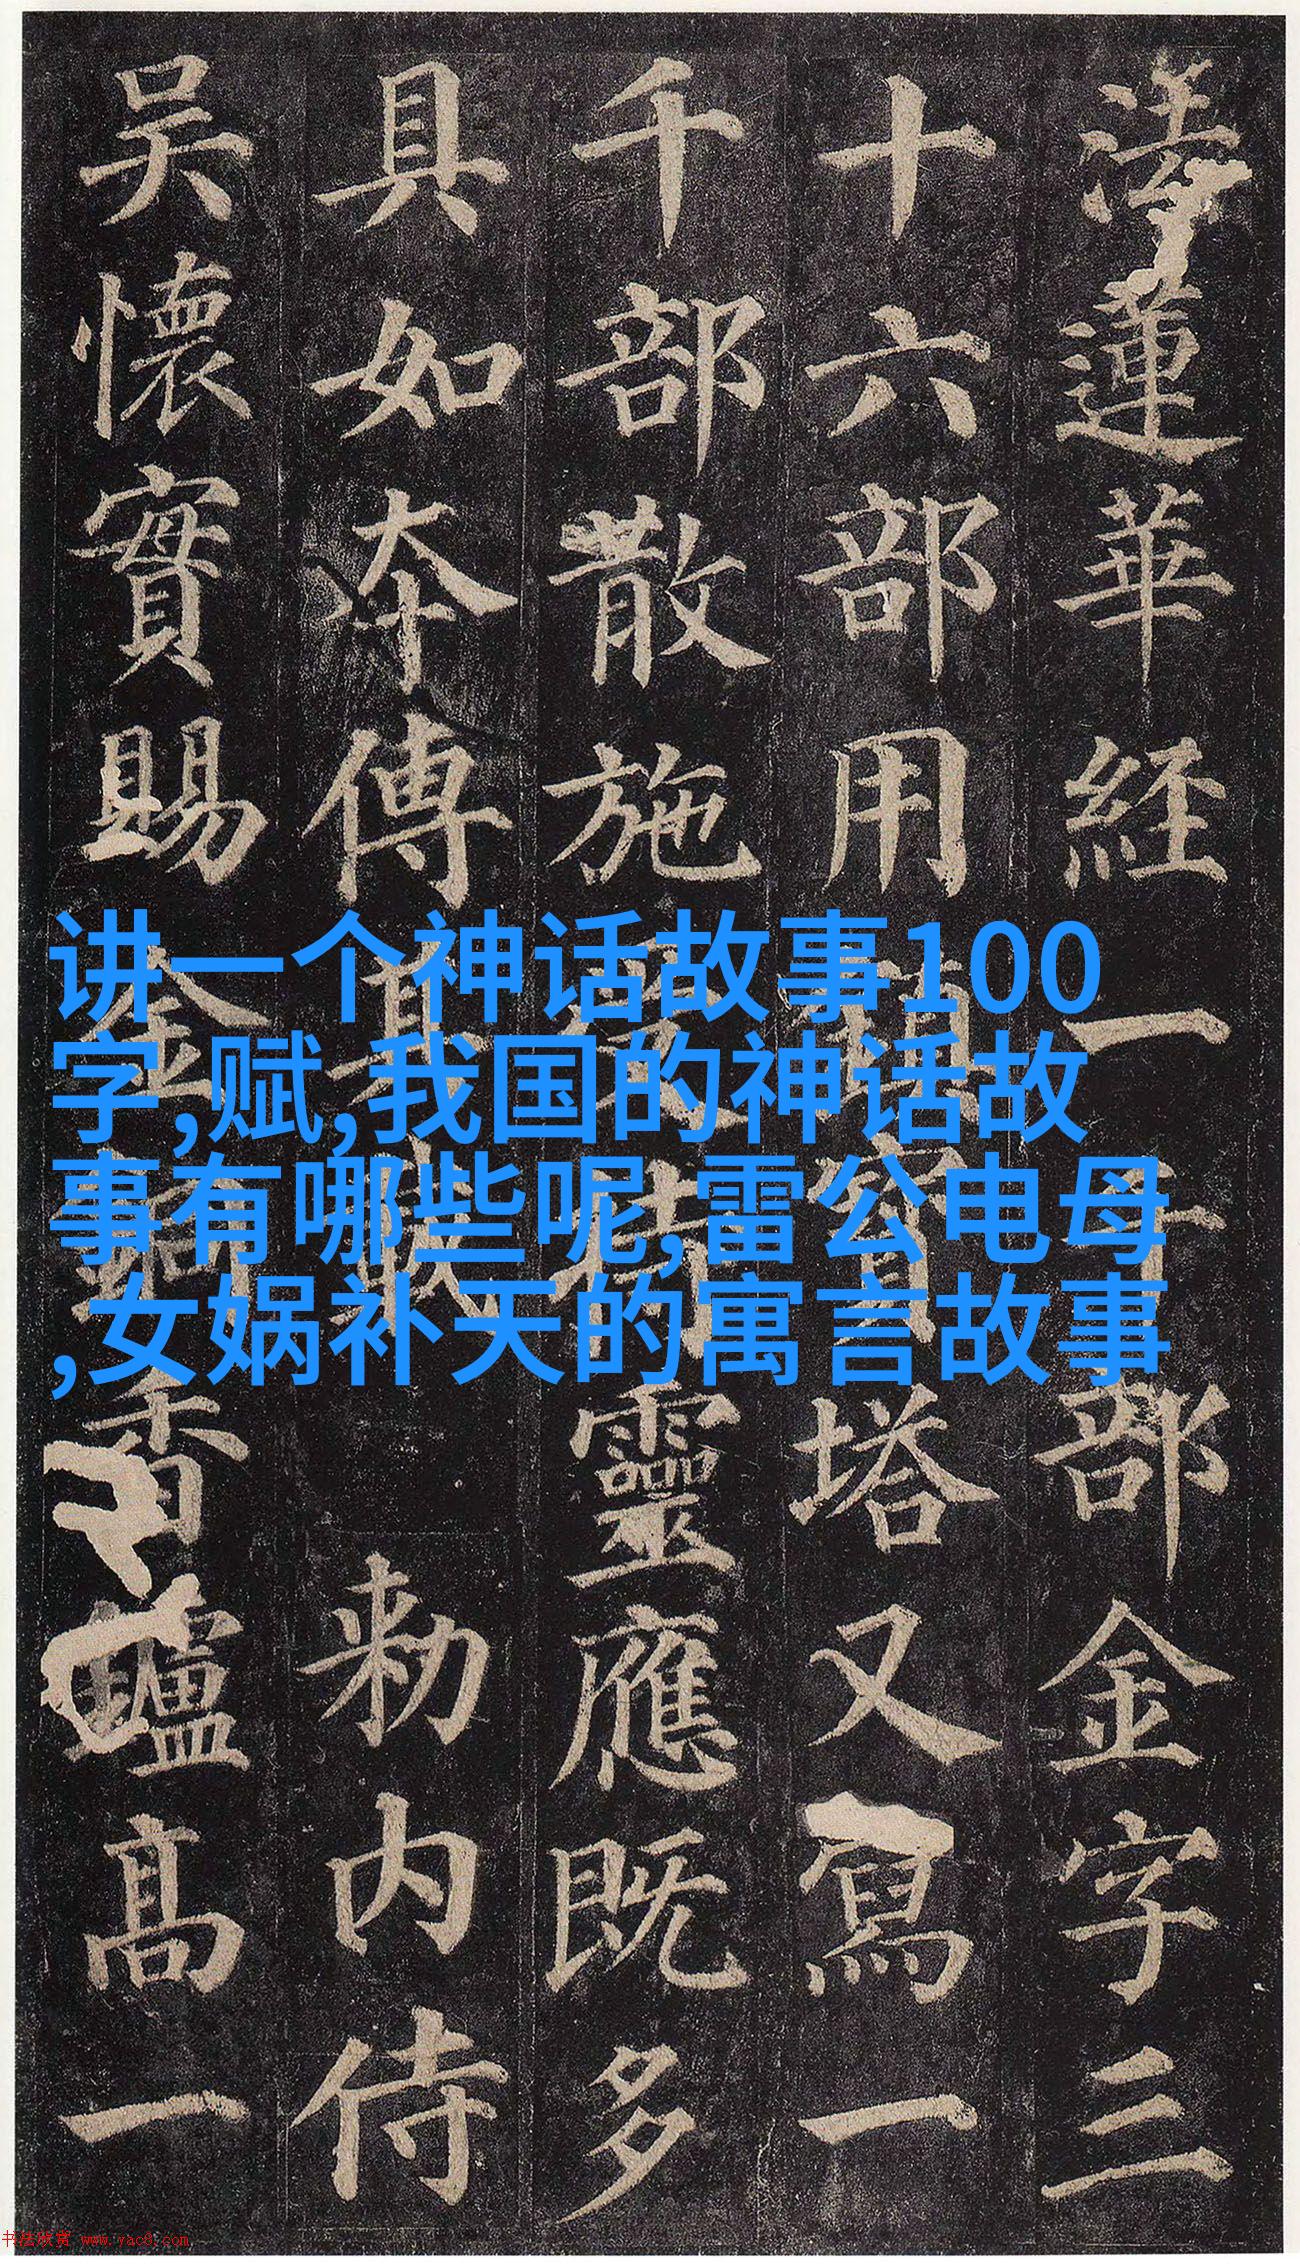 法蓮華経一千部金字三
十六部用鎮寶塔又寫一
千部散施受持靈應既多
具如夲傳其載勅内侍
吴懷實賜金銅香爐髙一
讲一个神话故事100
字,赋,我国的神话故
事有哪些呢,雷公电母
,女娲补天的寓言故事
书法欣赏 www.yac8.com